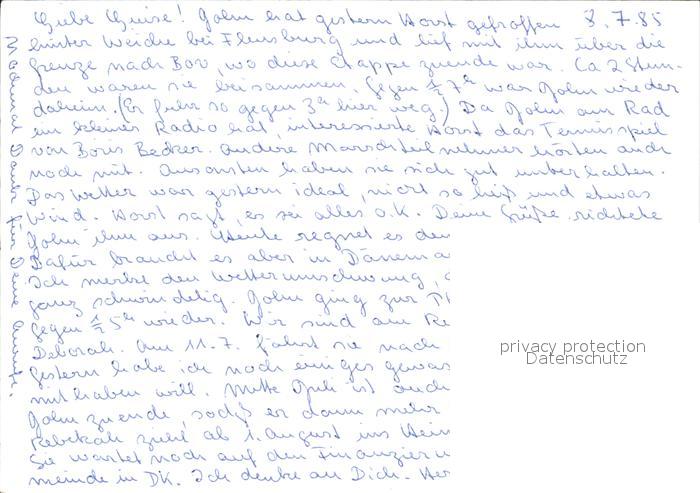 Liebe Luise! John hat gestern Horst getroffen 8.7.85
hinter Weiche bei Flensburg und lief mit ihm über die
Grenze nach Bov, wo diese Etappe zuende war. Ca 2 Stun-
den waren sie beisammen. Gegen ½ 7h war John wieder
daheim. (Er fuhr so gegen 3h hier weg) Da John am Rad
ein kleines Radio hat, interessierte Horst das Tennisspiel
von Boris Becker. Andere Marschteilnehmer hörten auch
noch mit. Ansonsten haben sie sich gut unterhalten.
Das Wetter war gestern ideal, nicht so heiß und etwas
Wind. Horst sagt, es sei alles o.K. Deine Grüße richtete
John ihm aus. Heute regnet es den
Dafür braucht es aber in Dänema
Ich merke den Wetterumschwung,
ganz schwindelig. John ging zur
gegen ½ 5h wieder. Wir sind am Re
Deborah. Am 11.7. fährt sie nach
Gestern habe ich noch einiges gewas
mithaben will. Mitte Juli ist auch
John zuende, sodaß er dann mehr
Rebekah zieht ab 1. August ins Heim
Sie wartet noch auf den Finanzier
meinde in DK. Ich denke an Dich. Her
Nochmal Danke für Deine Anrufe.
privacy protection
Datenschutz